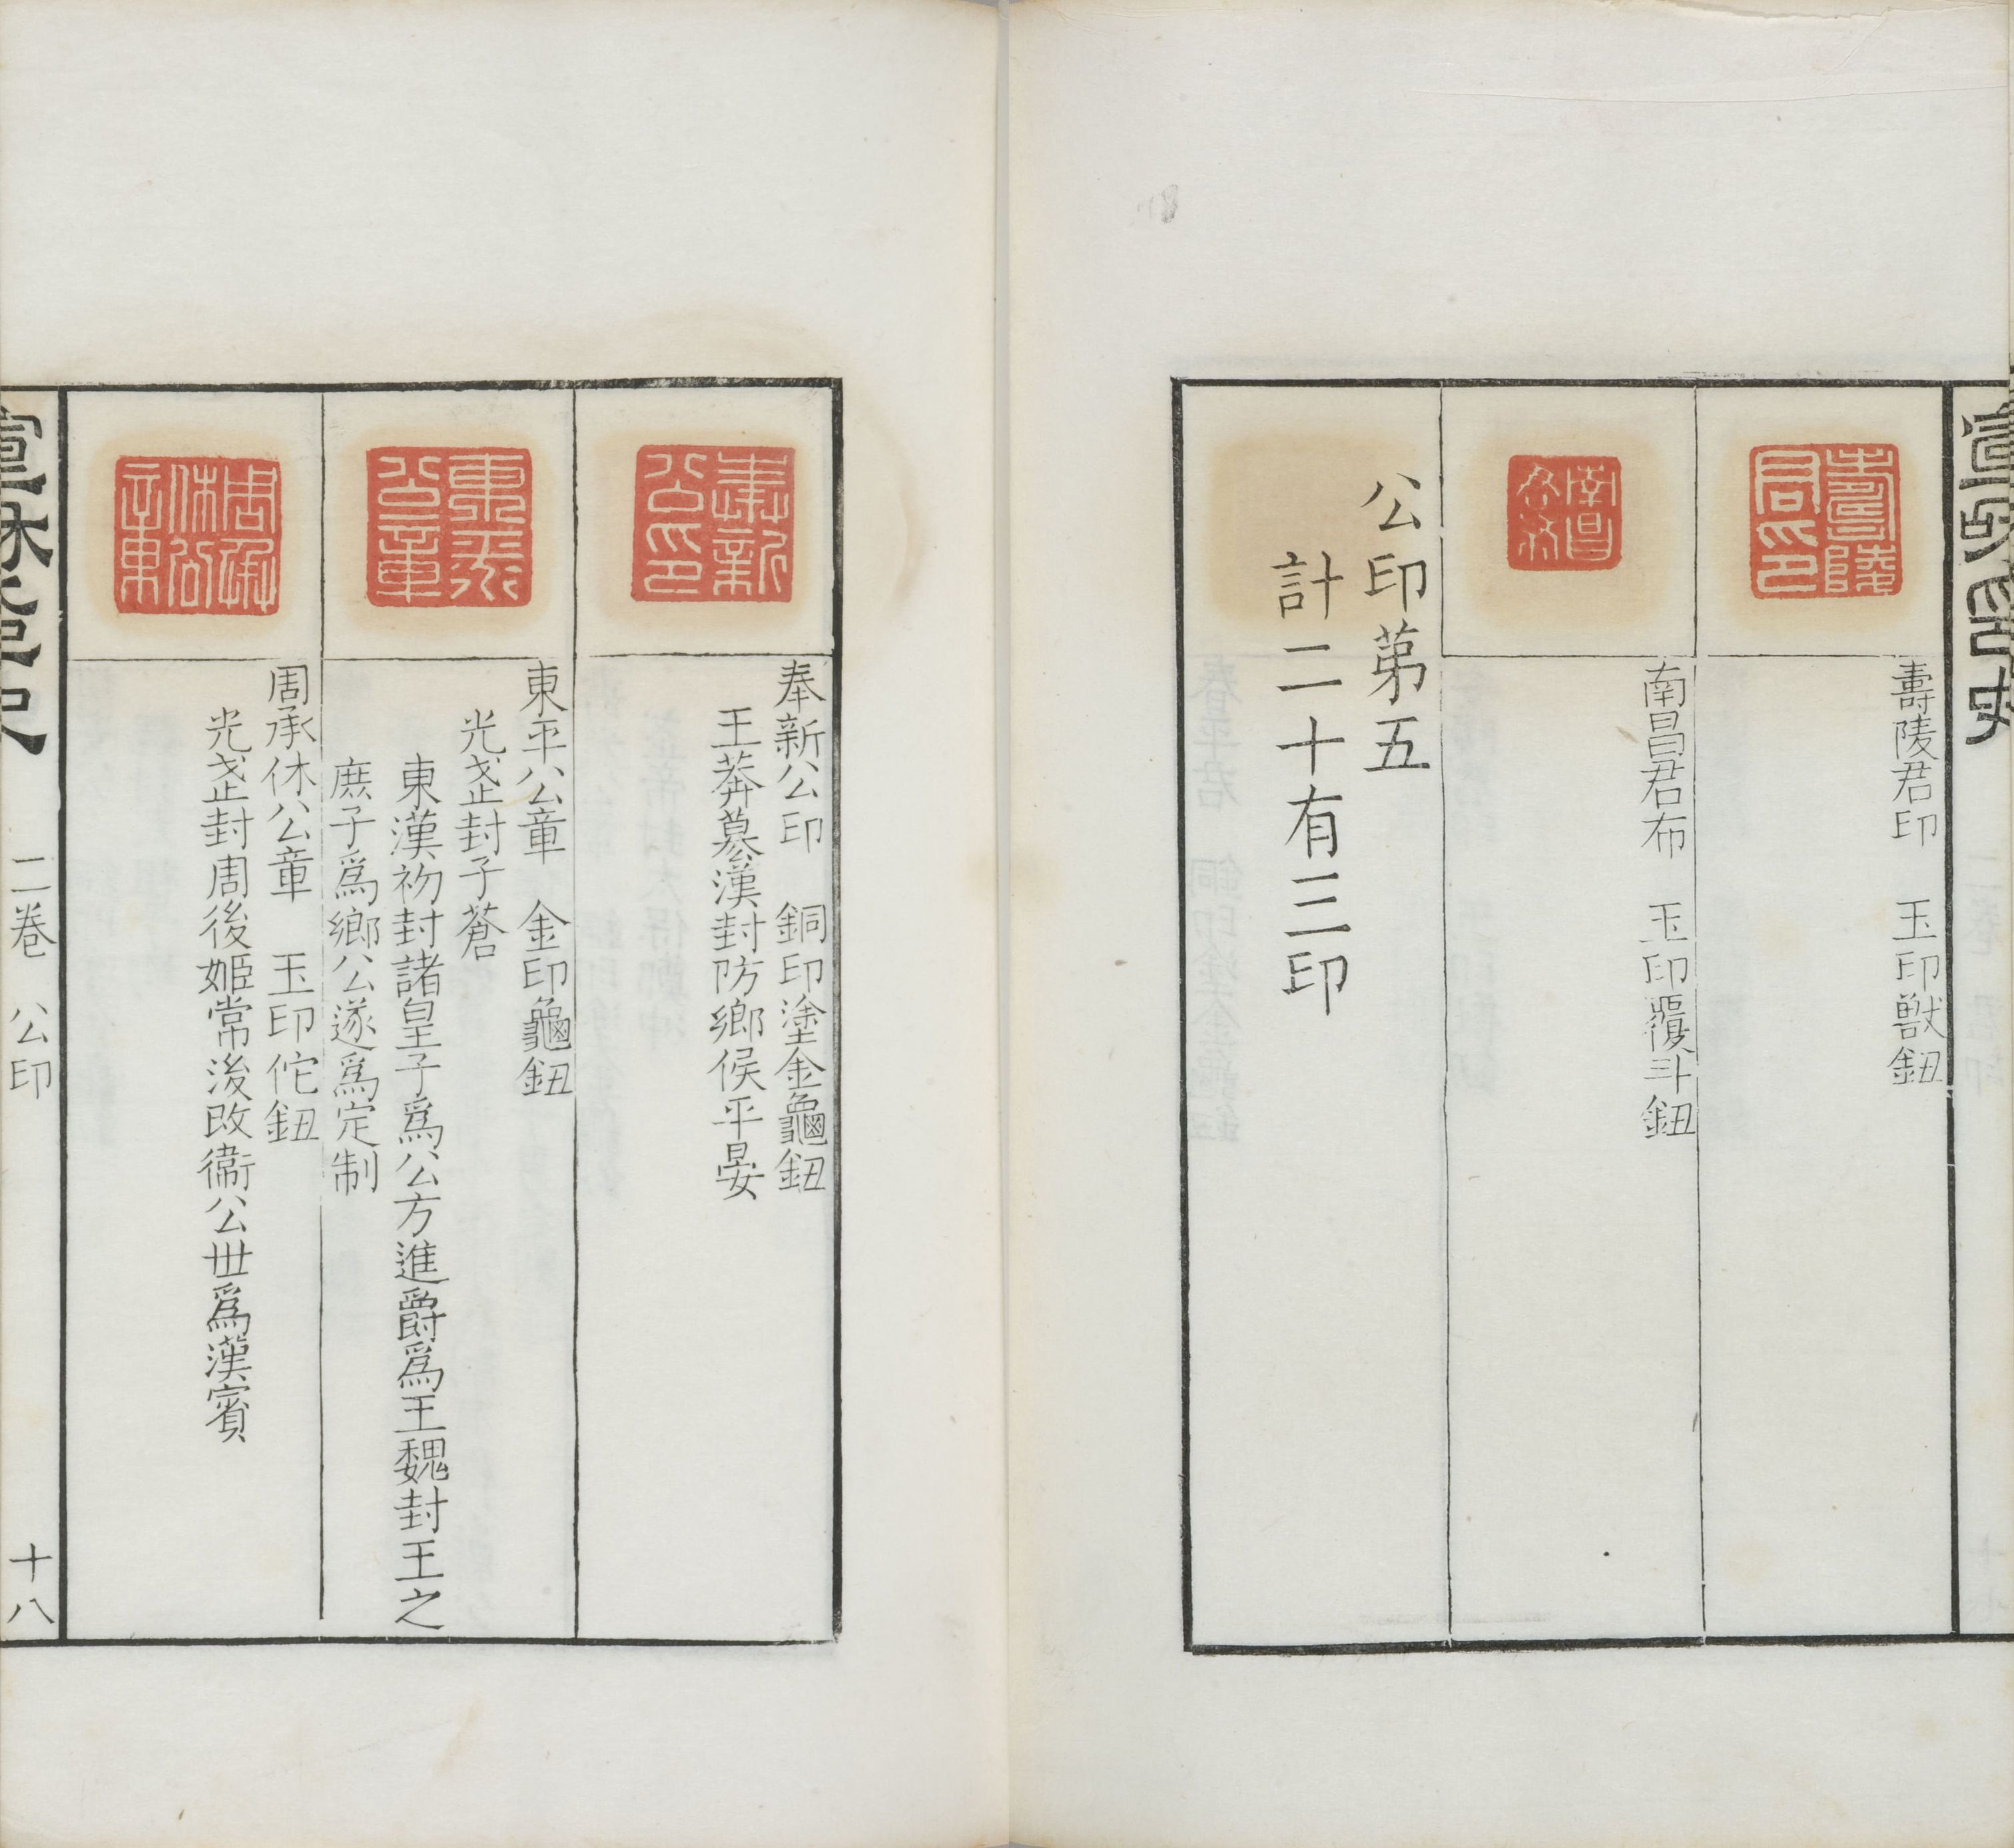 宣和印史
壽陵君印
壽陵君印　玉印獸鈕
南昌君布
南昌君布　玉印覆斗鈕
公印第五
計二十有三印
奉新公印
奉新公印　銅印塗金龜鈕
王莽篡漢封防鄉侯平晏
東平公章
東平公章　金印龜鈕
光武封子蒼
東漢初封諸皇子爲公方進爵爲王魏封王之
庶子爲鄉公遂爲定制
周承休公章
周承休公章　玉印佗鈕
光武封周後姬常後改衞公世爲漢賓
二卷　公印
十八